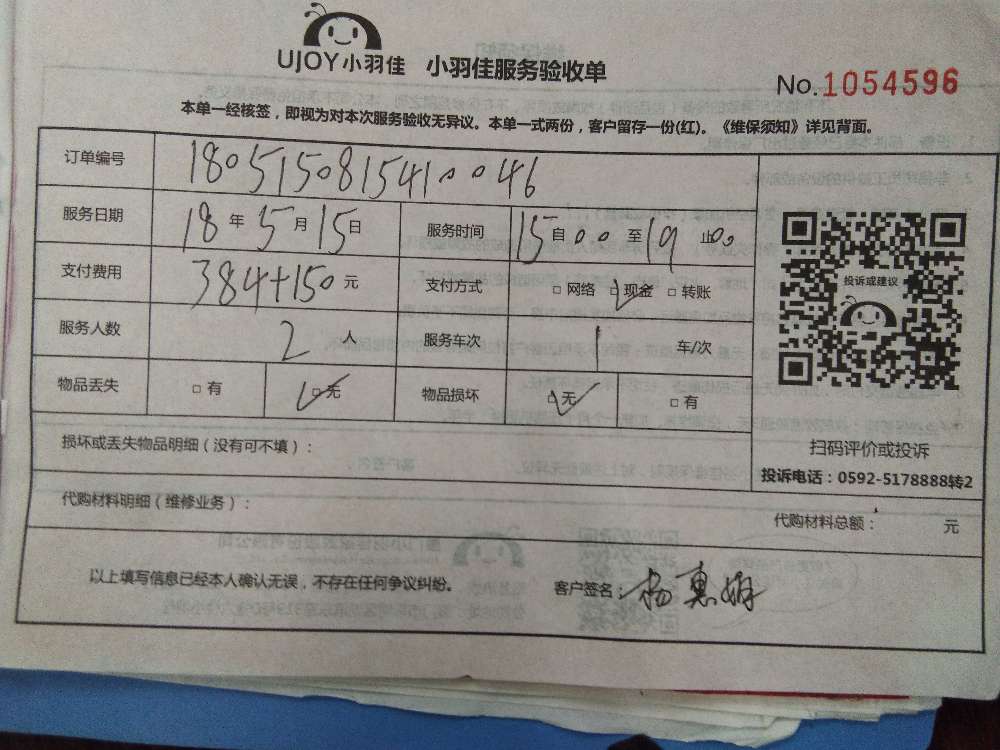 UJOY小羽佳 小羽佳服务验收单
No.1054596
本单一经核签，即视为对本次服务验收无异议。本单一式两份，客户留存一份(红)。《维保须知》详见背面。
订单编号 18051508154100046
服务日期 18年5月15日 服务时间 15自00至19止00
支付费用 384+150元 支付方式 □网络 □✓现金 □转账
服务人数 2人 服务车次 1 车/次
物品丢失 □有 □✓无 物品损坏 □✓无 □有
投诉或建议
扫码评价或投诉
投诉电话：0592-5178888转2
损坏或丢失物品明细（没有可不填）：
代购材料明细（维修业务）： 代购材料总额： 元
以上填写信息已经本人确认无误，不存在任何争议纠纷。 客户签名：杨惠娟